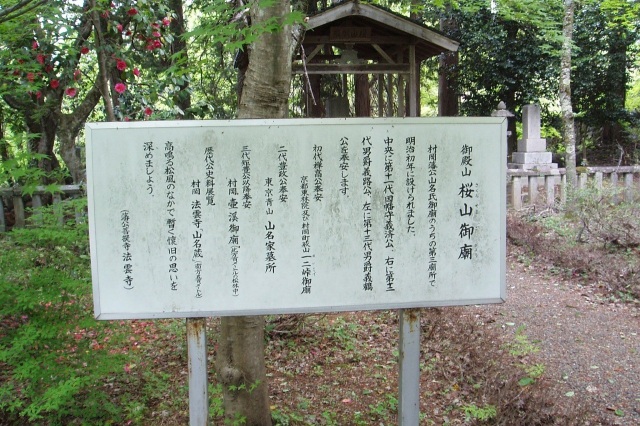 御殿山 桜山御廟
村岡藩公山名氏御廟のうちの第三廟所で
明治初年に設けられました。
中央に第十一代因幡守義済公、右に第十二
代男爵義路公、左に第十三代男爵義鶴
公を奉安します。
初代禅高公奉安
京都東林院及び村岡町殿山一二峠御廟
二代豊政公奉安
東京青山 山名家墓所
三代矩豊公以降奉安
村岡 壺渓御廟
歴代公史料展覧
村岡 法雲寺山名蔵
高鳴る松風のなかで暫く懐旧の思いを
深めましょう。
法雲寺)